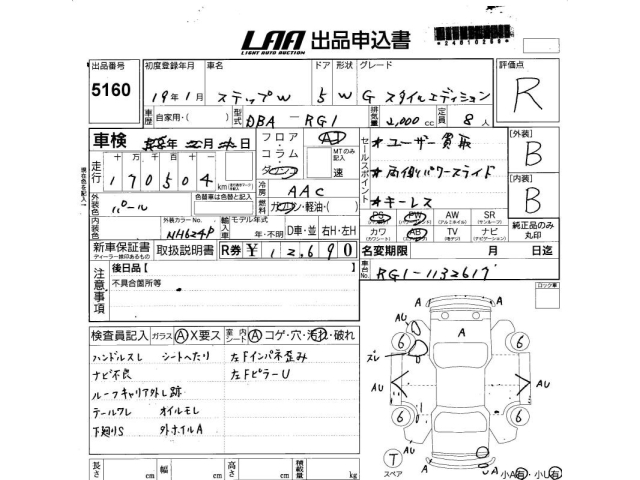 LAA 出品申込書
LIGHT AUTO AUCTION
出品番号
5160
初度登録年月 車名 ドア 形状 グレード
19年1月 ステップW 5 W G スタイルエディション
評価点
R
車歴 自家用・( ) 型式 DBA - RG1 排気量 2,000cc 定員 8人
車検 年 月 日
フロア・コラム・ AT
MTのみ記入 速
セールスポイント
＊ユーザー買取
＊両側パワースライド
＊キーレス
[外装]
B
[内装]
B
走行 十 万 千 百 十
170504 km
冷房 AAC
燃料 ガソリン・軽油・( )
外装色 パール
色替車は色替と記入
内装色
外装カラーNo. NH624P
輸入車 モデル年式 年・不明 D車・並 右H・左H
PS PW AW SR
カワ AB TV ナビ
純正品のみ丸印
新車保証書 取扱説明書 R券 ¥12,690
ディーラー印のあるもの
名変期限 月 日迄
車台No. RG1-1132617
注意事項
後日品【 】
不具合箇所等
ロック車
検査員記入 ガラスⒶX要ス 室内シートⒶコゲ・穴・汚れ・破れ
ハンドルスレ シートへたり 左Fインパネ歪み
ナビ不良 左FピラーU
ルーフキャリア外し跡
テールワレ オイルモレ
下廻りS 外ホイルA
AU A A AU
ズレ
6 6
AU AU
6 6
AU A A A
T
スペア
小A有・小U有
長さ cm 幅 cm 高さ cm 積載量 kg